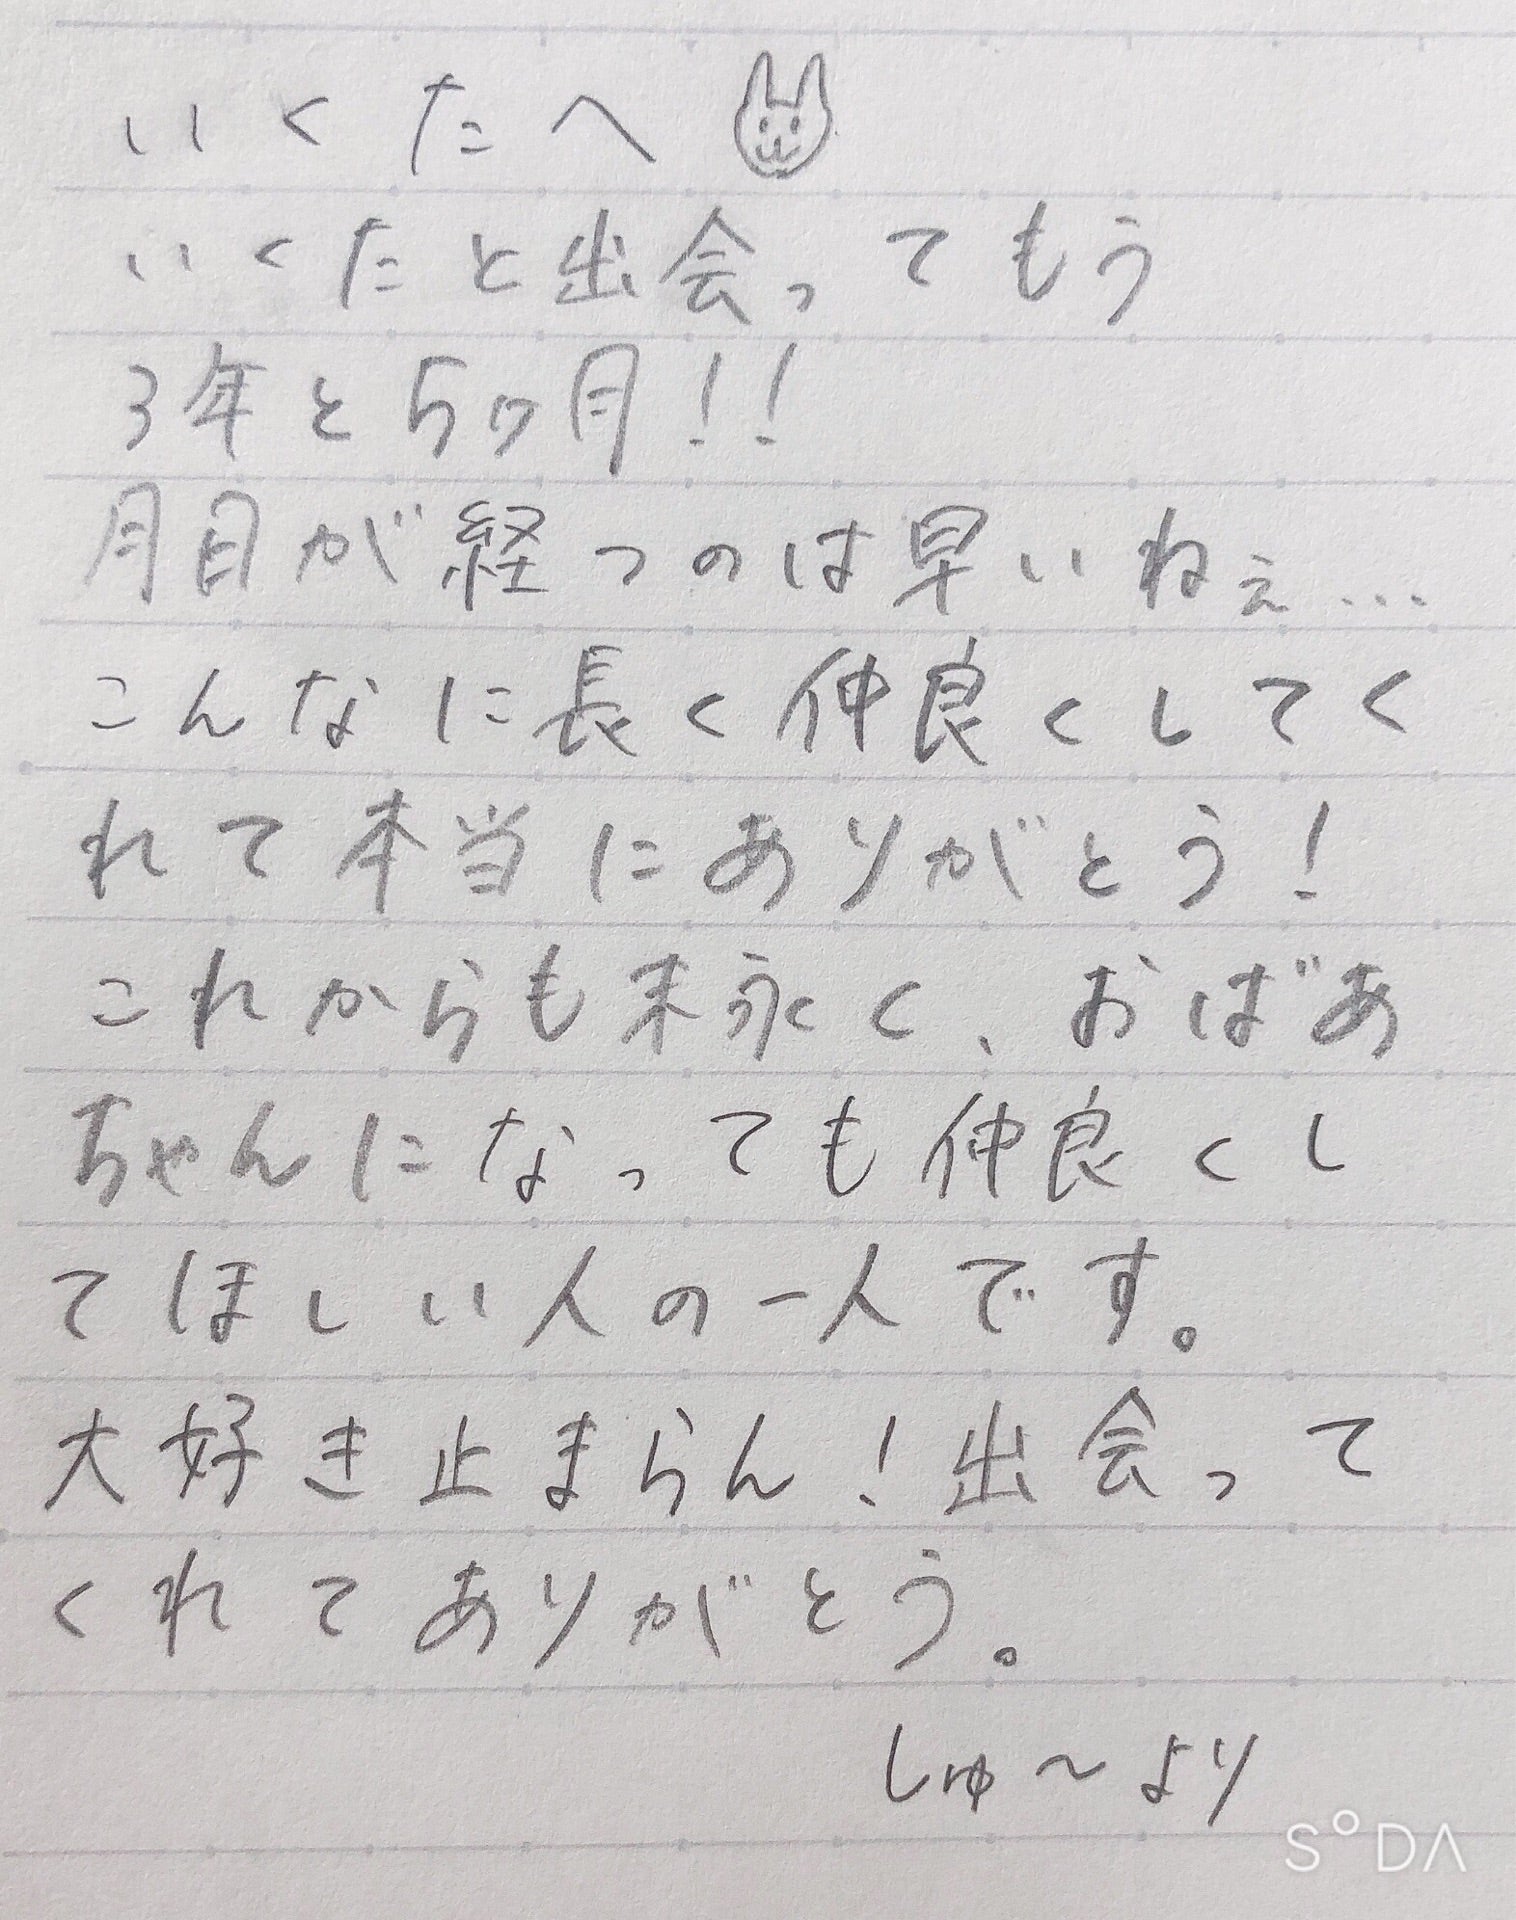 いくたへ
いくたと出会ってもう
3年と5ヶ月!!
月日が経つのは早いねぇ...
こんなに長く仲良くしてく
れて本当にありがとう!
これからも末永く、おばあ
ちゃんになっても仲良くし
てほしい人の一人です。
大好き止まらん!出会って
くれてありがとう。
しゅ〜より
SODA